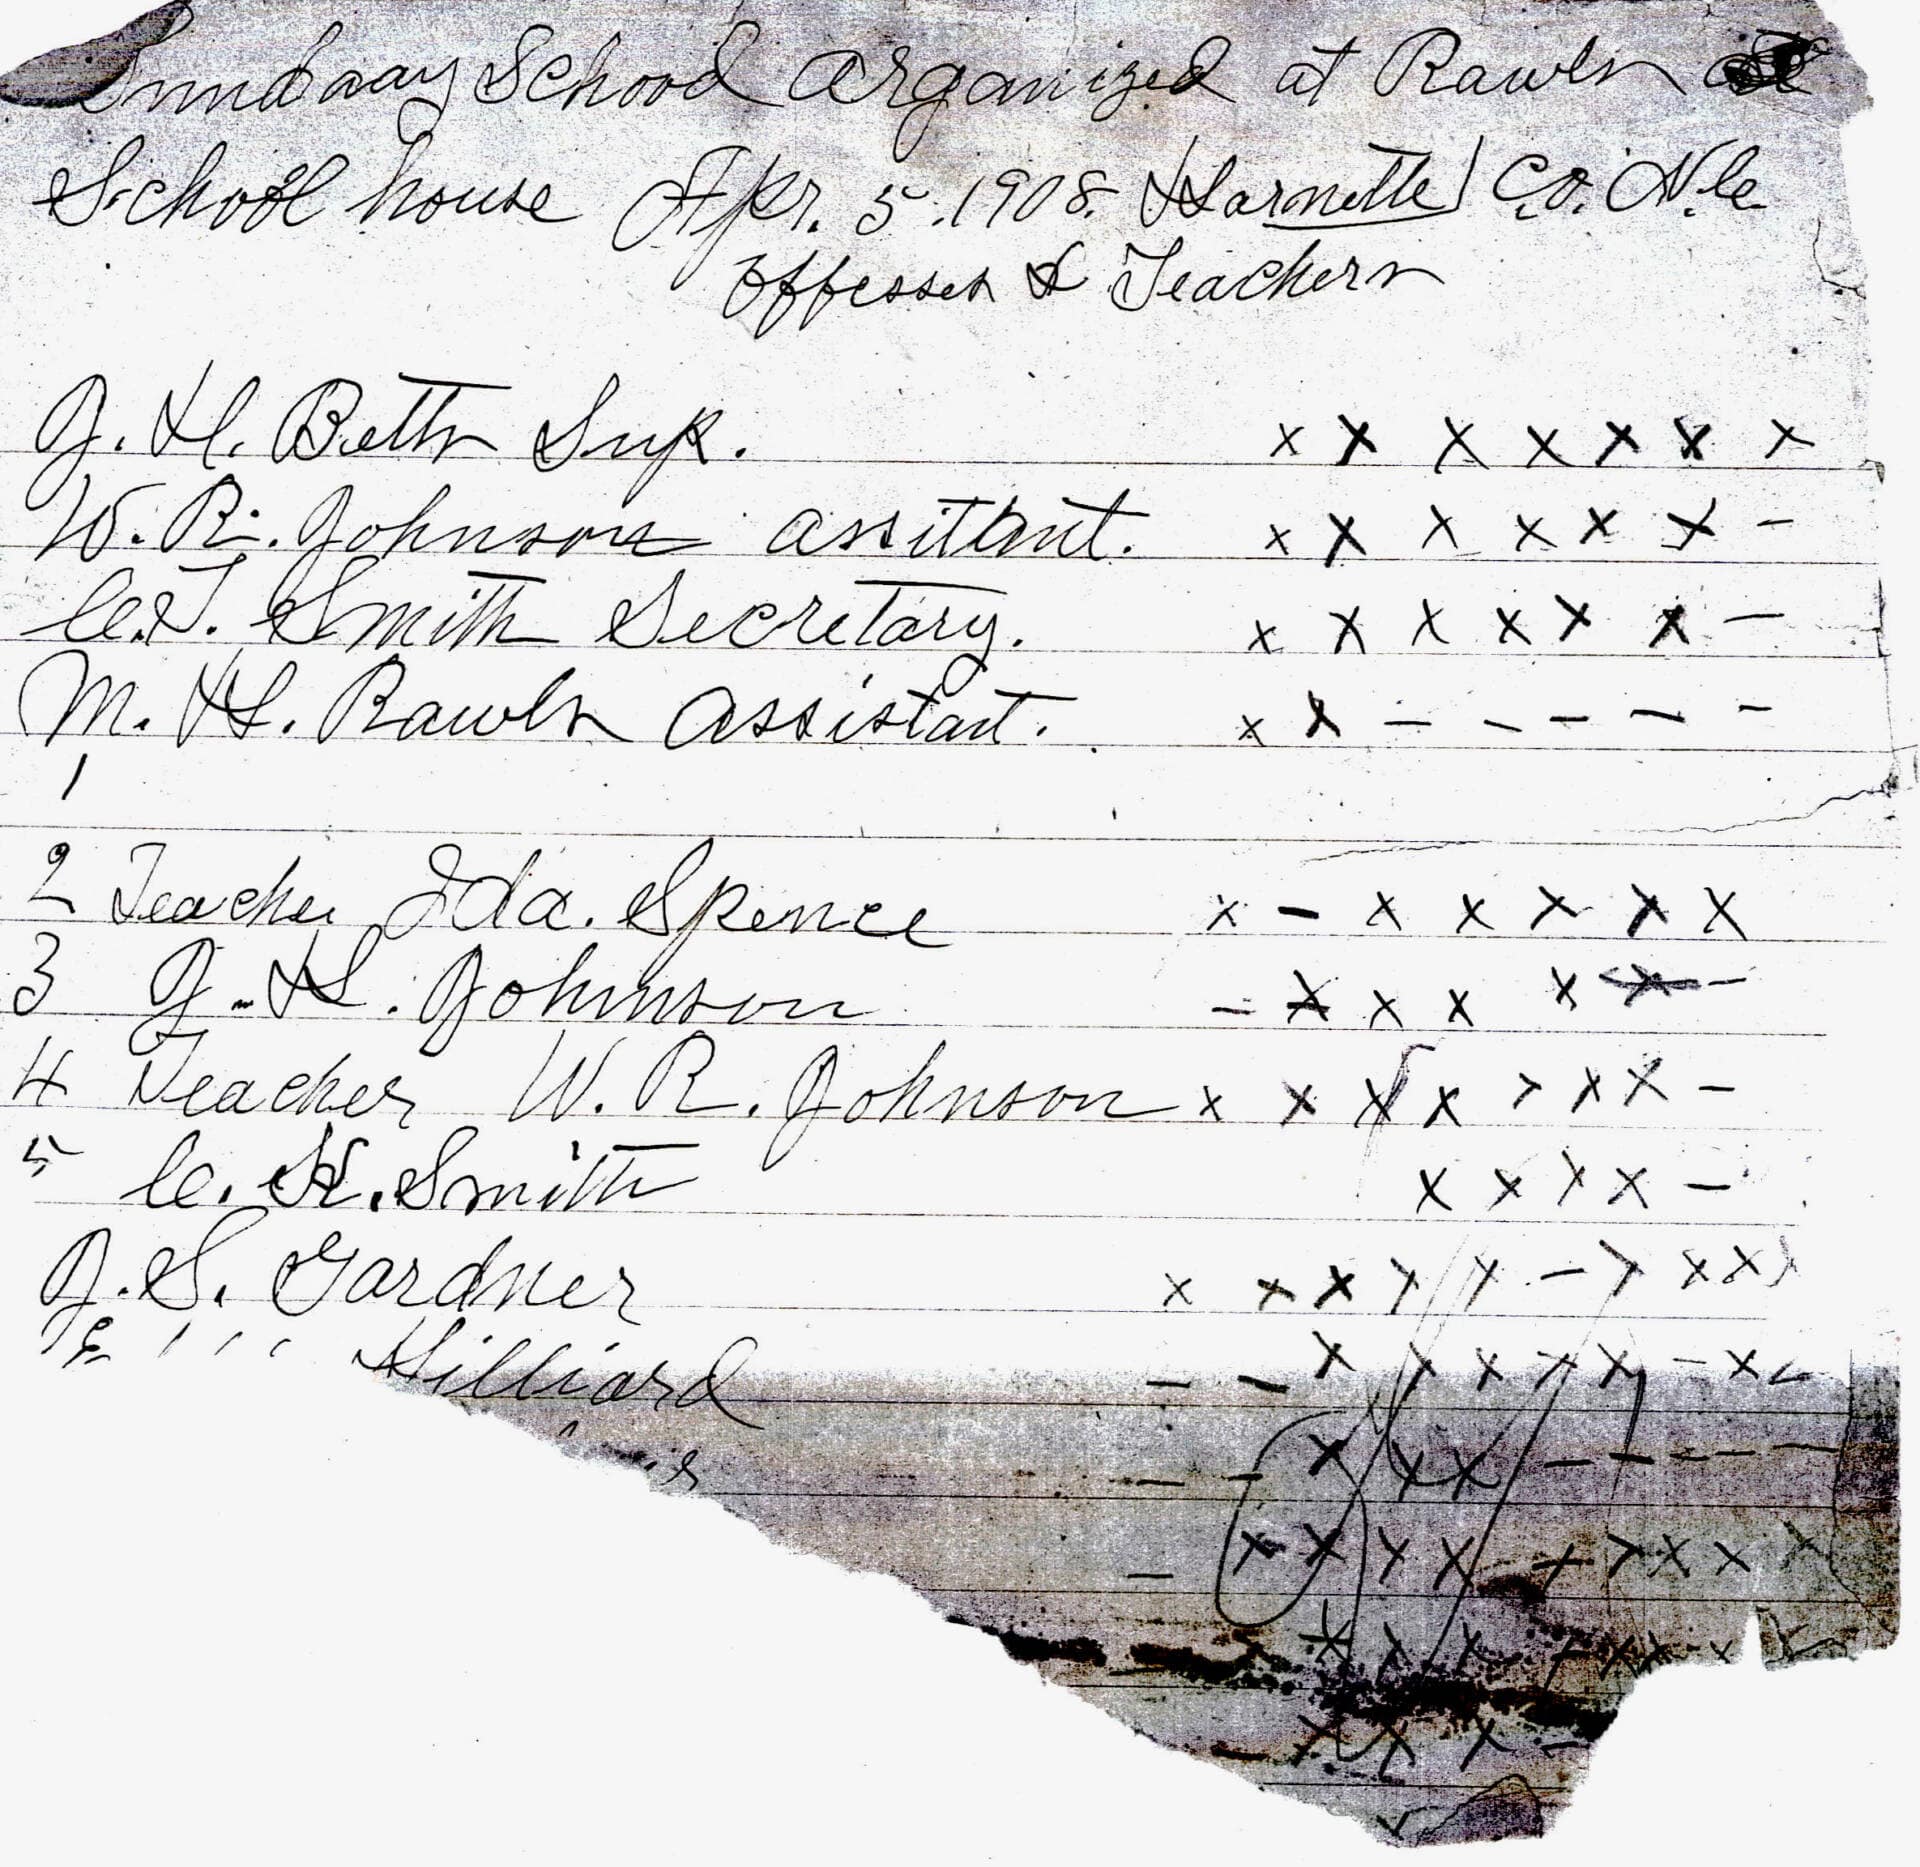 Sunndaay School organized at Rawls
School house Apr. 5. 1908. Harnette Co. N.C.
Offesses & Teachers
J. H. Betts Sup. x x x x x x x
W. R. Johnson assitant. x x x x x x -
C.T. Smith Secretary. x x x x x x -
M. H. Rawls assistant. x x - - - - -
1
2 Teacher Ida. Spence x - x x x x x
3 J. H. Johnson - x x x x x -
4 Teacher W. R. Johnson x x x x x x x -
5 C. H. Smith x x x x -
J. S. Gardner x x x x x - x x x
Hilliard - - x x x x x - x
- - x x x - - - -
- x x x x x x x x x
x x x
- x x x -